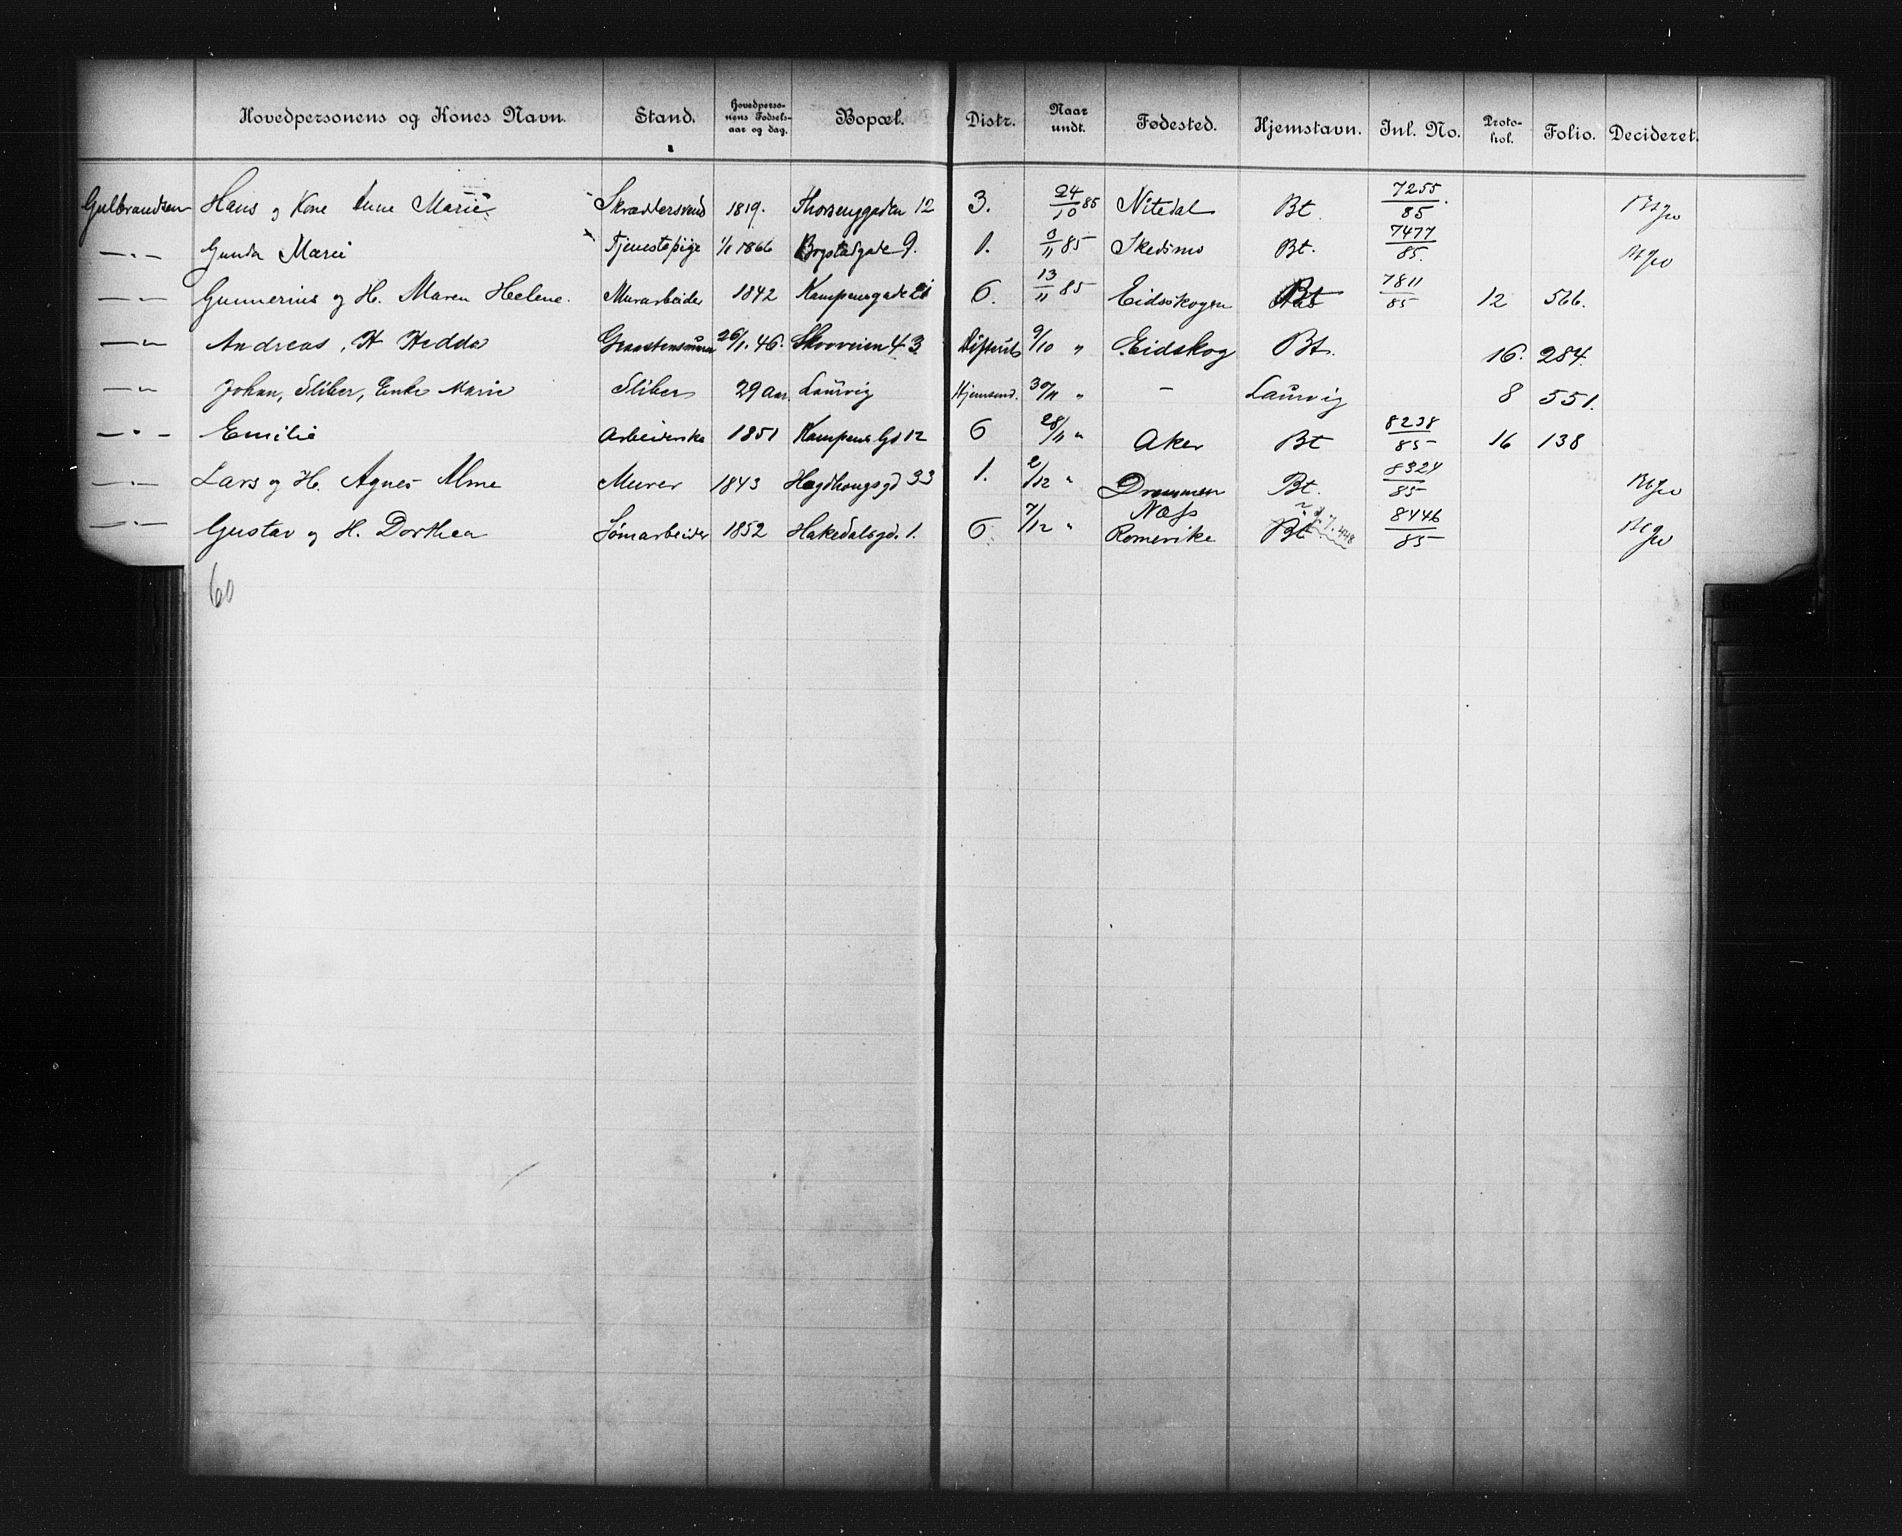 Hovedpersonens og Kones Navn. Stand. Hovedperso-nens Fødsels-aar og dag. Bopæl. Distr. Naar undt. Fødested. Hjemstavn. Inl. No. Proto-kol. Folio. Decideret.
Gulbrandsen Hans og Kone Anne Marie Skræddersvend 1819. Thorsenggaden 12 3. 24/10 85 Nitedal Bt. 7255/85
—"— Gunda Marie Tjenestepige 1/1 1866 Bogstadgade 9. 1. 3/11 85 Skedsmo Bt. 7477/85.
—"— Gunnerius og H. Maren Helene. Murarbeider 1842 Kampensgade 21 6. 13/11 85 Eidsskogen Bt 7811/85 12 566.
—"— Andreas, H Hedda 26/1. 46. Skovveien 43 9/10 " Eidskog Bt. 16. 284.
—"— Johan, Sliber, Enke Marie Sliber 29 Aar. Laurvig Hjemsend. 30/11 " — Laurvig 8 551.
—"— Emilie Arbeiderske 1851 Kampens Gd 12 6 28/11 " Aker Bt 8238/85 16 138
—"— Lars og H. Agnes Alme Murer 1843 Hægdhaugsgd 33 1. 2/12 " Drammen Bt. 8324/85
—"— Gustav og H. Dorthea Jernarbeider 1852 Hakedalsgd. 1. 6. 7/12 " Næs Romerike Bt 448 8446/85
60